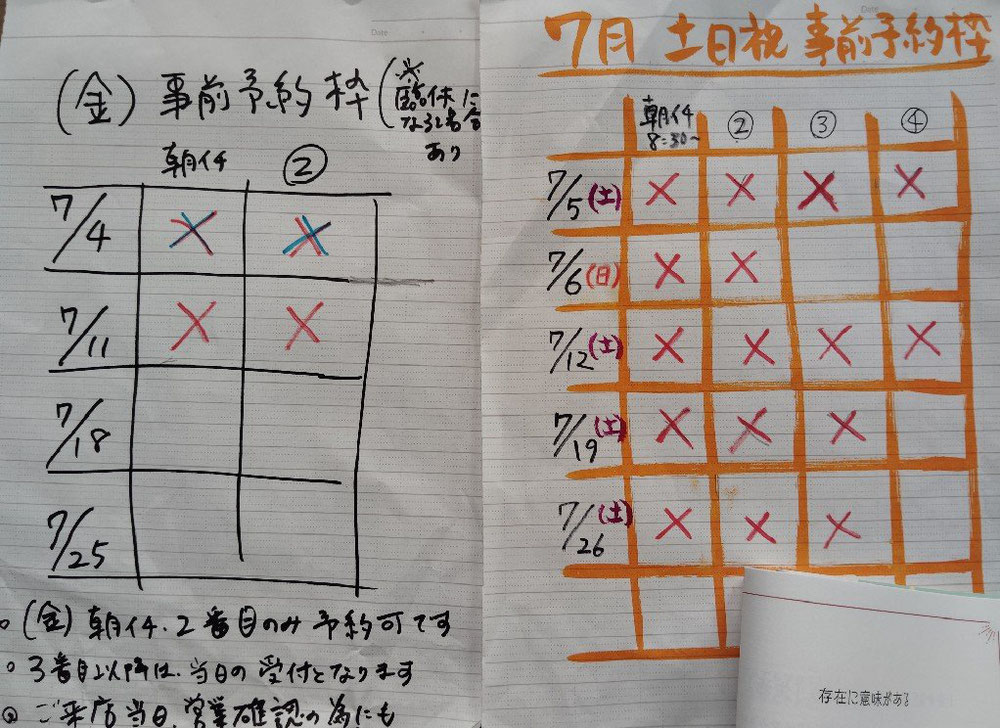 (金) 事前予約枠
(※
臨休に
なる場合
あり
朝イチ ②
7/4 × ×
7/11 × ×
7/18
7/25
○ (金) 朝イチ、2番目のみ予約可です
○ 3番目以降は、当日の受付となります
◎ ご来店当日、営業確認の為にも
7月 土日祝 事前予約枠
朝イチ ② ③ ④
8:30~
7/5(土) × × × ×
7/6(日) × ×
7/12(土) × × × ×
7/19(土) × × ×
7/26(土) × × ×
存在に意味がある